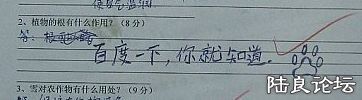 2、植物的根有什么作用？（8分）
答：
百度一下，你就知道.
3、雪对农作物有什么用处？（9分）
陆良论坛